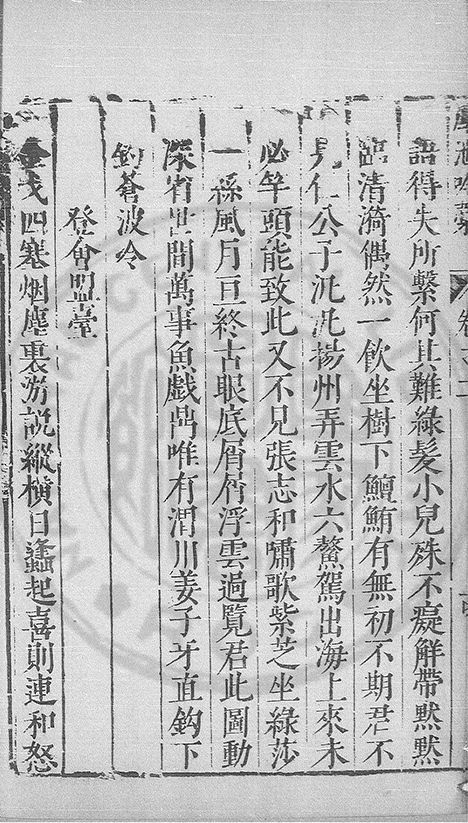 語得失所繫何其難綠髮小兒殊不癡解帶默默
臨清漪偶然一飲坐樹下鱣鮪有無初不期君不
見任公子汎汎揚州弄雲水六鰲駕出海上來未
必竿頭能致此又不見張志和嘯歌紫芝坐綠莎
一孫風月亘終古眼底屑屑浮雲過覽君此圖動
深省世間萬事魚戲鼎唯有渭川姜子牙直鈎下
釣蒼波冷
登會盟臺
金戈四塞烟塵裏游說縱橫日蠭起喜則連和怒